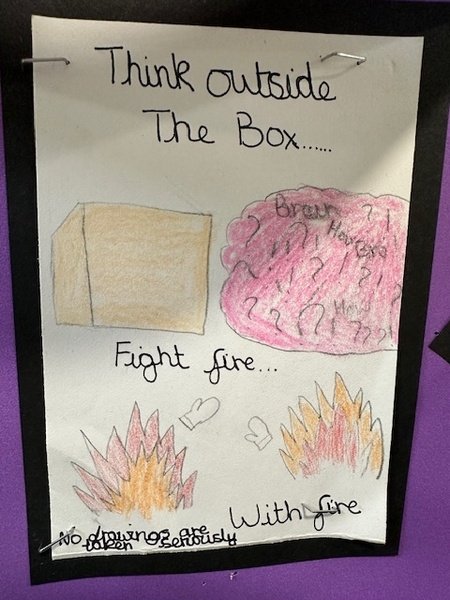 Think outside
The Box......
Brain
? ! ? ! ! ?
How
Fight fire...
With fire
No drawings are
taken seriously